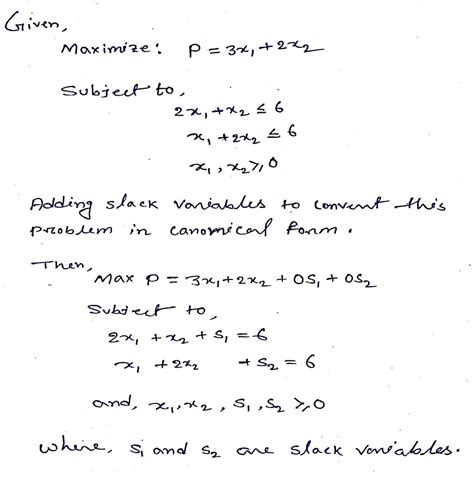 Given,
Maximize: P = 3x₁ + 2x₂
Subject to,
2x₁ + x₂ ≤ 6
x₁ + 2x₂ ≤ 6
x₁, x₂ ≥ 0
Adding slack variables to convert this
problem in canonical form.
Then,
Max P = 3x₁ + 2x₂ + 0S₁ + 0S₂
Subject to,
2x₁ + x₂ + S₁ = 6
x₁ + 2x₂ + S₂ = 6
and, x₁, x₂, S₁, S₂ ≥ 0
where, S₁ and S₂ are slack variables.